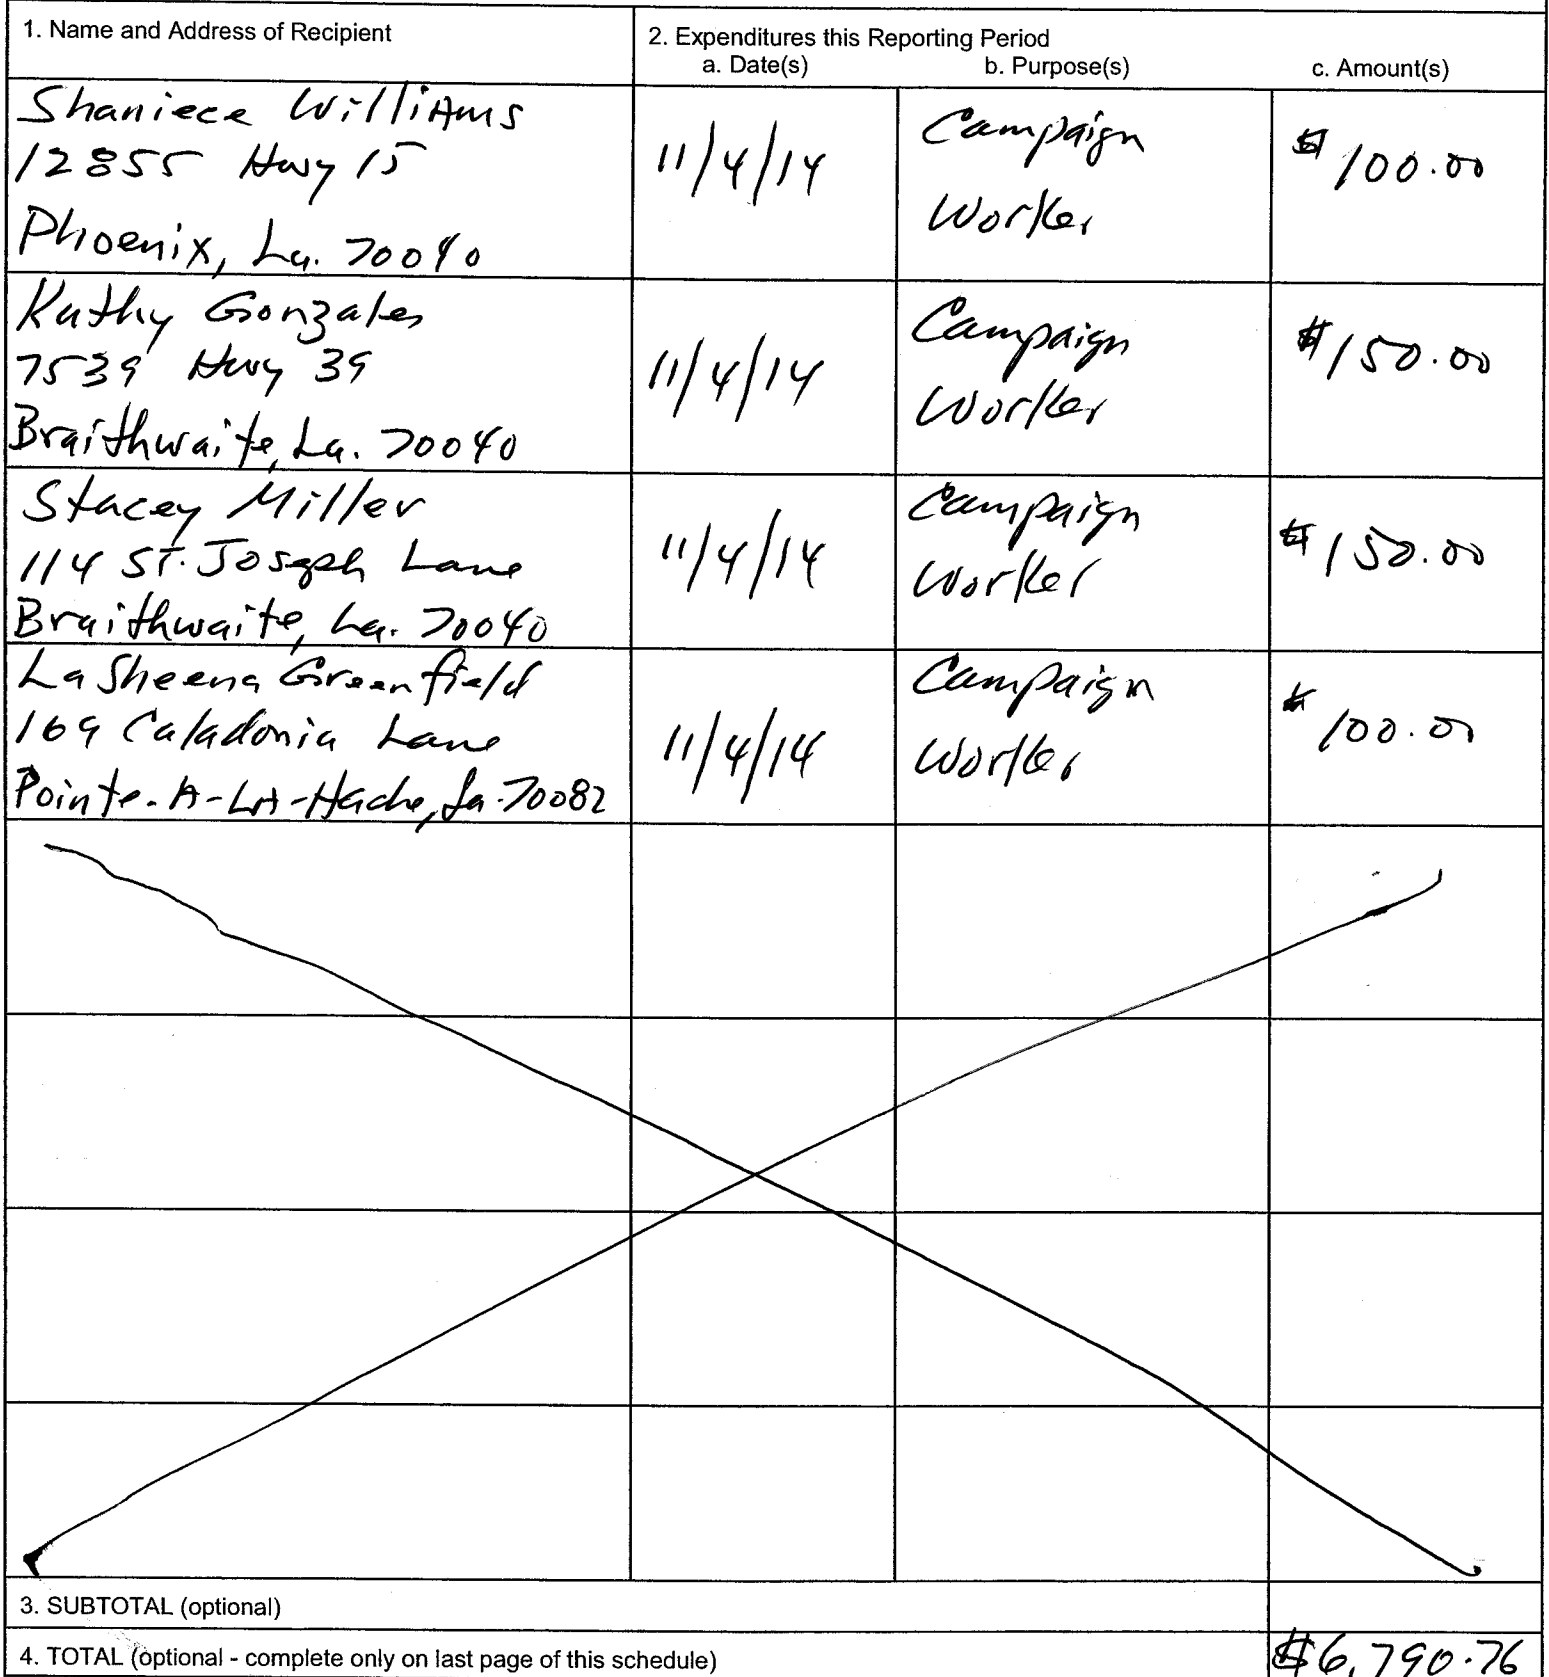 1. Name and Address of Recipient
2. Expenditures this Reporting Period
a. Date(s) b. Purpose(s) c. Amount(s)
Shaniece Williams
12855 Hwy 15
Phoenix, La. 70040
11/4/14
Campaign
Worker
$100.00
Kathy Gonzales
7539 Hwy 39
Braithwaite, La. 70040
11/4/14
Campaign
Worker
$150.00
Stacey Miller
114 St. Joseph Lane
Braithwaite, La. 70040
11/4/14
Campaign
Worker
$150.00
LaSheena Greenfield
169 Caladonia Lane
Pointe-A-LA-Hache, La. 70082
11/4/14
Campaign
Worker
$100.00
3. SUBTOTAL (optional)
4. TOTAL (optional - complete only on last page of this schedule)
$6,790.76